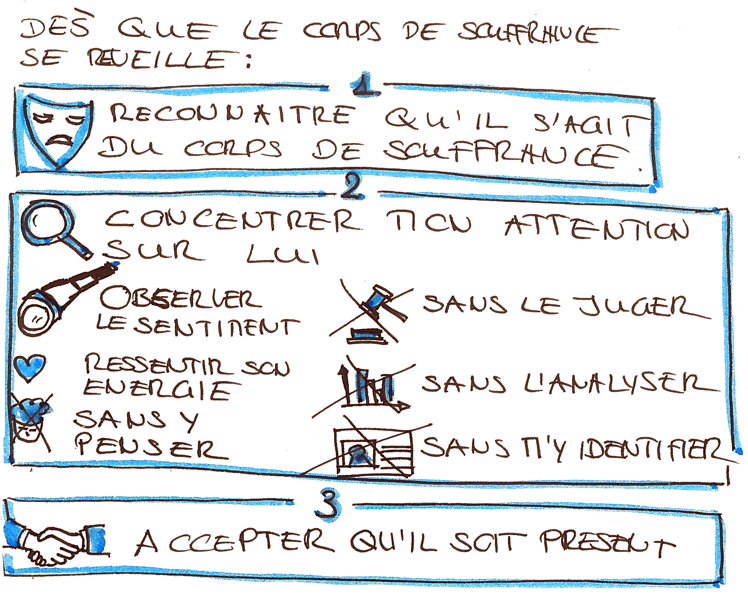 DÈS QUE LE CORPS DE SOUFFRANCE
SE REVEILLE :
1
RECONNAITRE QU'IL S'AGIT
DU CORPS DE SOUFFRANCE.
2
CONCENTRER MON ATTENTION
SUR LUI
OBSERVER
LE SENTIMENT
RESSENTIR SON
ENERGIE
SANS Y
PENSER
SANS LE JUGER
SANS L'ANALYSER
SANS M'Y IDENTIFIER
3
ACCEPTER QU'IL SOIT PRESENT